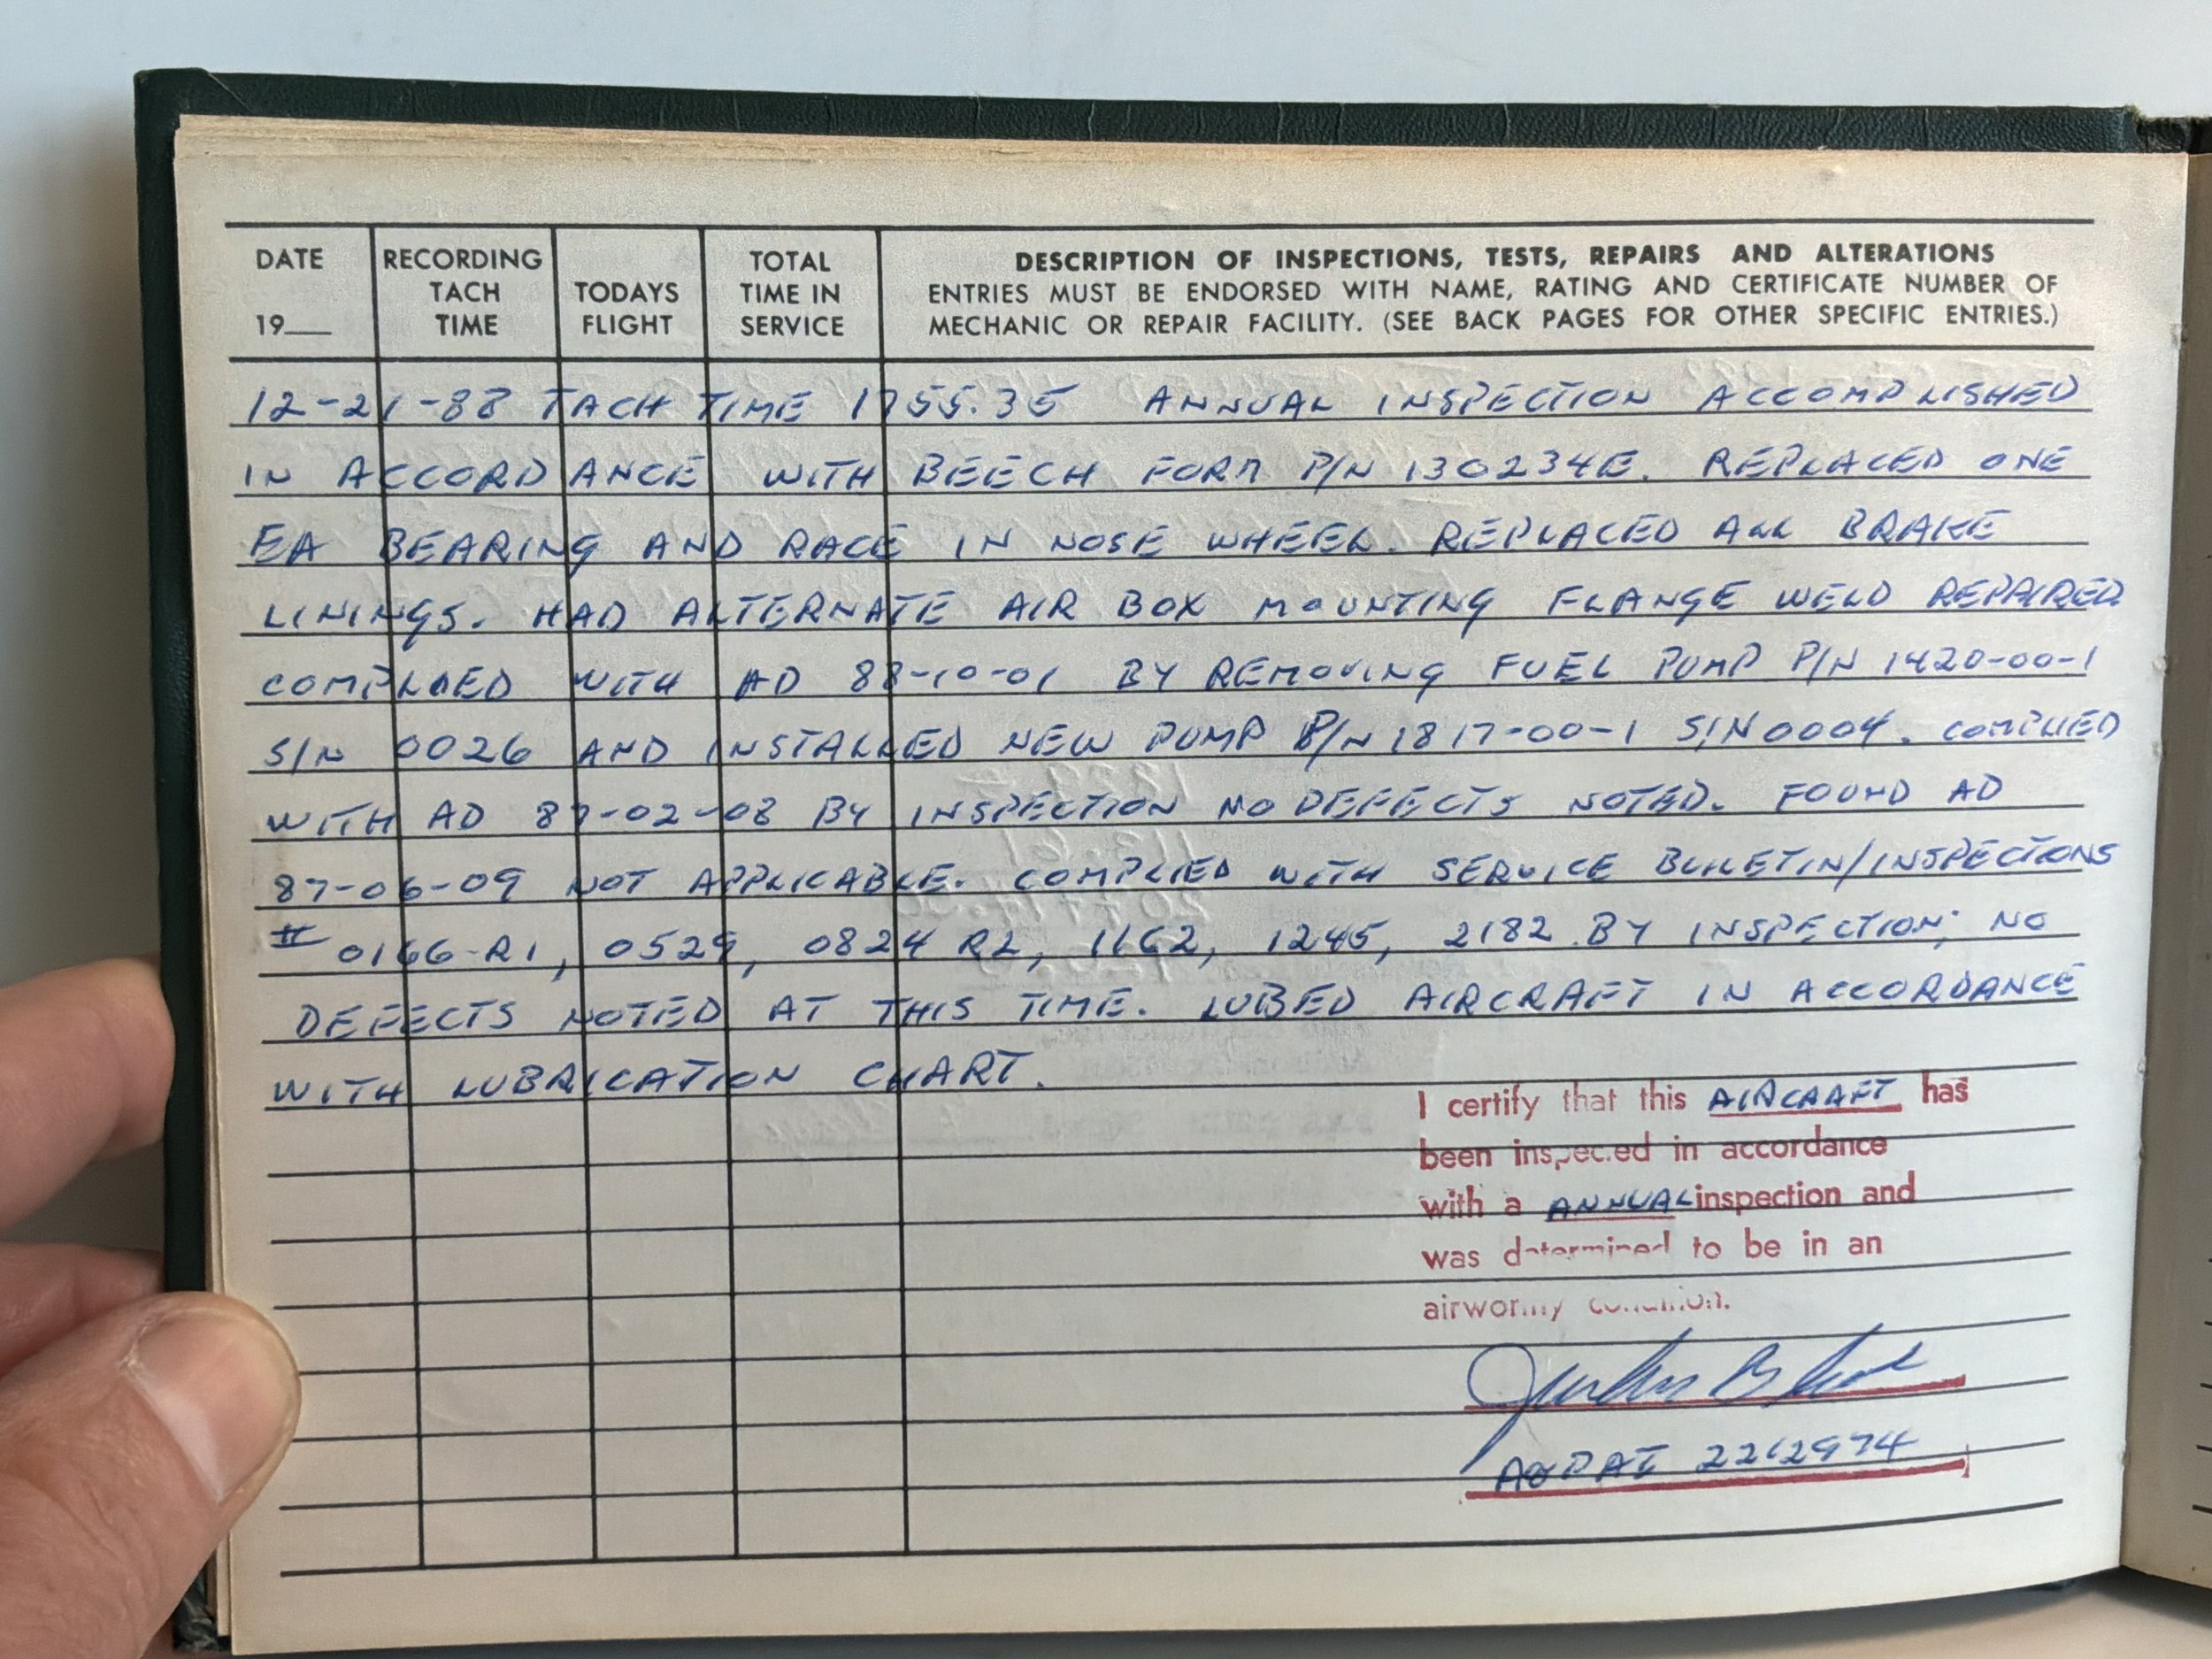 DATE
19__
RECORDING
TACH
TIME
TODAYS
FLIGHT
TOTAL
TIME IN
SERVICE
DESCRIPTION OF INSPECTIONS, TESTS, REPAIRS AND ALTERATIONS
ENTRIES MUST BE ENDORSED WITH NAME, RATING AND CERTIFICATE NUMBER OF
MECHANIC OR REPAIR FACILITY. (SEE BACK PAGES FOR OTHER SPECIFIC ENTRIES.)
12-21-88 TACH TIME 1755.35 ANNUAL INSPECTION ACCOMPLISHED
IN ACCORDANCE WITH BEECH FORM P/N 130234E. REPLACED ONE
EA BEARING AND RACE IN NOSE WHEEL. REPLACED ALL BRAKE
LININGS. HAD ALTERNATE AIR BOX MOUNTING FLANGE WELD REPAIRED.
COMPLIED WITH AD 88-10-01 BY REMOVING FUEL PUMP P/N 1420-00-1
S/N 0026 AND INSTALLED NEW PUMP P/N 1817-00-1 S/N 0004. COMPLIED
WITH AD 87-02-08 BY INSPECTION NO DEFECTS NOTED. FOUND AD
87-06-09 NOT APPLICABLE. COMPLIED WITH SERVICE BULLETIN/INSPECTIONS
# 0166-R1, 0529, 0824 R2, 1162, 1245, 2182 BY INSPECTION; NO
DEFECTS NOTED AT THIS TIME. LUBED AIRCRAFT IN ACCORDANCE
WITH LUBRICATION CHART.
I certify that this AIRCRAFT has
been inspected in accordance
with a ANNUAL inspection and
was determined to be in an
airworthy condition.
2212974